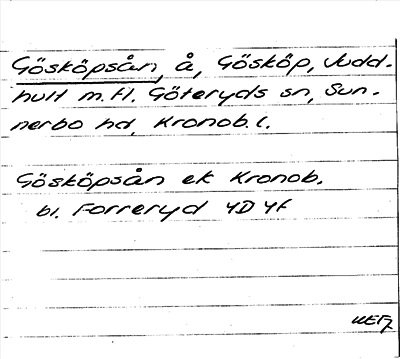 Gösköpsån, å, Gösköp, Judd-
hult m.fl. Göteryds sn, Sun-
nerbo hd, Kronob.l.
Gösköpsån ek Kronob.
bl. Forreryd 4D 4f